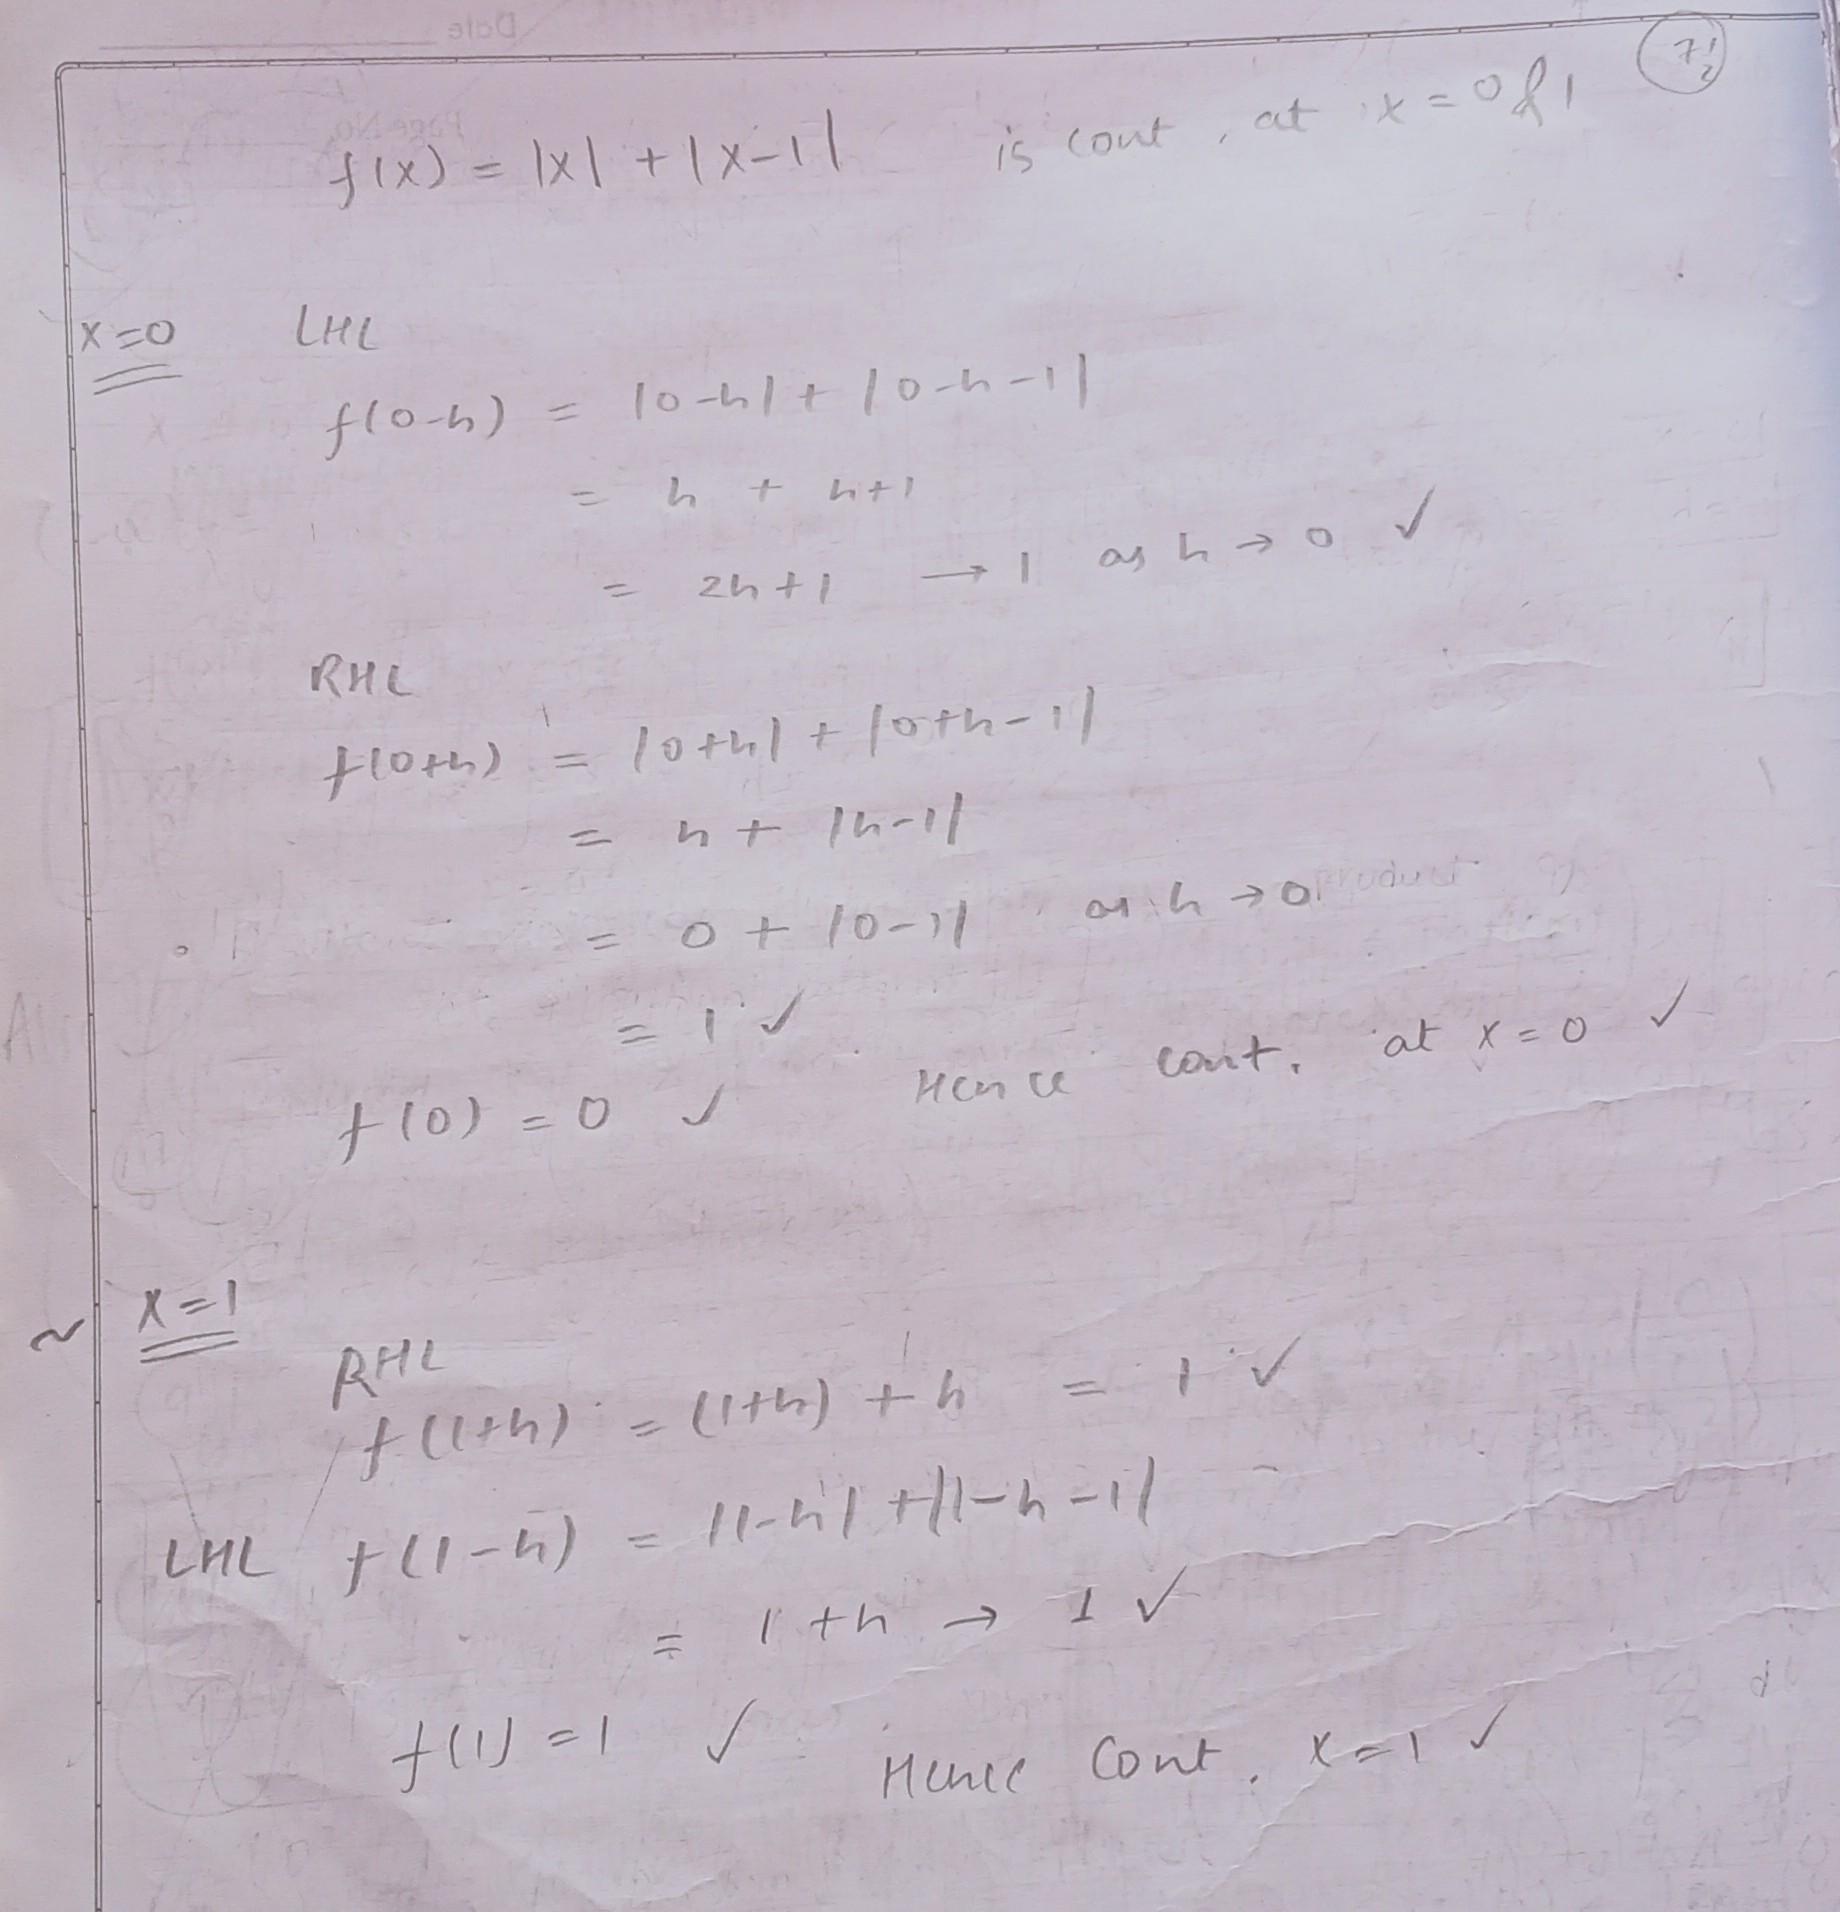 Date
Page No.
7½
f(x) = |x| + |x-1| is cont. at x = 0 & 1
x=0 LHL
f(0-h) = |0-h| + |0-h-1|
= h + h+1
= 2h+1 → 1 as h → 0 ✓
RHL
f(0+h) = |0+h| + |0+h-1|
= h + |h-1|
= 0 + |0-1| as h → 0
= 1 ✓
f(0) = 0 ✓ Hence cont. at x = 0 ✓
x=1
RHL
f(1+h) = (1+h) + h = 1 ✓
LHL f(1-h) = |1-h| + |1-h-1|
= 1+h → 1 ✓
f(1) = 1 ✓ Hence Cont. x=1 ✓